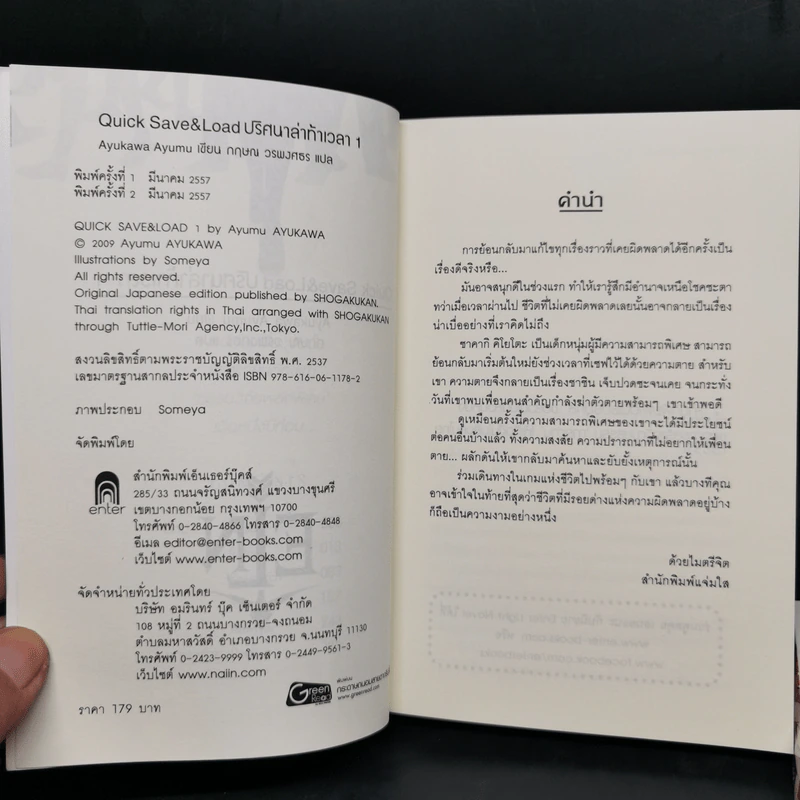 Quick Save&Load ปริศนาล่าท้าเวลา 1
Ayukawa Ayumu เขียน กฤษณ วรพงศธร แปล
พิมพ์ครั้งที่ 1 มีนาคม 2557
พิมพ์ครั้งที่ 2 มีนาคม 2557
QUICK SAVE&LOAD 1 by Ayumu AYUKAWA
© 2009 Ayumu AYUKAWA
Illustrations by Someya
All rights reserved.
Original Japanese edition published by SHOGAKUKAN.
Thai translation rights in Thai arranged with SHOGAKUKAN
through Tuttle-Mori Agency,Inc.,Tokyo.
สงวนลิขสิทธิ์ตามพระราชบัญญัติลิขสิทธิ์ พ.ศ. 2537
เลขมาตรฐานสากลประจำหนังสือ ISBN 978-616-06-1178-2
ภาพประกอบ Someya
จัดพิมพ์โดย
enter
สำนักพิมพ์เอ็นเธอร์บุ๊คส์
285/33 ถนนจรัญสนิทวงศ์ แขวงบางขุนศรี
เขตบางกอกน้อย กรุงเทพฯ 10700
โทรศัพท์ 0-2840-4866 โทรสาร 0-2840-4848
อีเมล editor@enter-books.com
เว็บไซต์ www.enter-books.com
จัดจำหน่ายทั่วประเทศโดย
บริษัท อมรินทร์ บุ๊ค เซ็นเตอร์ จำกัด
108 หมู่ที่ 2 ถนนบางกรวย-จงถนอม
ตำบลมหาสวัสดิ์ อำเภอบางกรวย จ.นนทบุรี 11130
โทรศัพท์ 0-2423-9999 โทรสาร 0-2449-9561-3
เว็บไซต์ www.naiin.com
Green Read
www.greenread.com
ราคา 179 บาท
คำนำ
การย้อนกลับมาแก้ไขทุกเรื่องราวที่เคยผิดพลาดได้อีกครั้งเป็น
เรื่องดีจริงหรือ...
มันอาจสนุกดีในช่วงแรก ทำให้เรารู้สึกมีอำนาจเหนือโชคชะตา
ทว่าเมื่อเวลาผ่านไป ชีวิตที่ไม่เคยผิดพลาดเลยนั้นอาจกลายเป็นเรื่อง
น่าเบื่ออย่างที่เราคิดไม่ถึง
ซาคากิ คิโยโตะ เป็นเด็กหนุ่มผู้มีความสามารถพิเศษ สามารถ
ย้อนกลับมาเริ่มต้นใหม่ยังช่วงเวลาที่เซฟไว้ได้ด้วยความตาย สำหรับ
เขา ความตายจึงกลายเป็นเรื่องชาชิน เจ็บปวดซะจนเคย จนกระทั่ง
วันที่เขาพบเพื่อนคนสำคัญกำลังฆ่าตัวตายพร้อมๆ เขาเข้าพอดี
ดูเหมือนครั้งนี้ความสามารถพิเศษของเขาจะได้มีประโยชน์
ต่อคนอื่นบ้างแล้ว ทั้งความสงสัย ความปรารถนาที่ไม่อยากให้เพื่อน
ตาย... ผลักดันให้เขากลับมาค้นหาและยับยั้งเหตุการณ์นั้น
ร่วมเดินทางในเกมแห่งชีวิตไปพร้อมๆ กับเขา แล้วบางทีคุณ
อาจเข้าใจในท้ายที่สุดว่าชีวิตที่มีรอยด่างแห่งความผิดพลาดอยู่บ้าง
ก็ถือเป็นความงามอย่างหนึ่ง
ด้วยไมตรีจิต
สำนักพิมพ์แจ่มใส